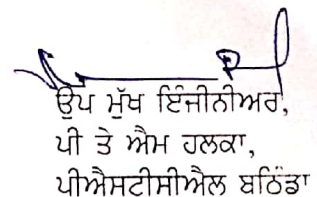 ਉਪ ਮੁੱਖ ਇੰਜੀਨੀਅਰ,
ਪੀ ਤੇ ਐਮ ਹਲਕਾ,
ਪੀਐਸਟੀਸੀਐਲ ਬਠਿੰਡਾ